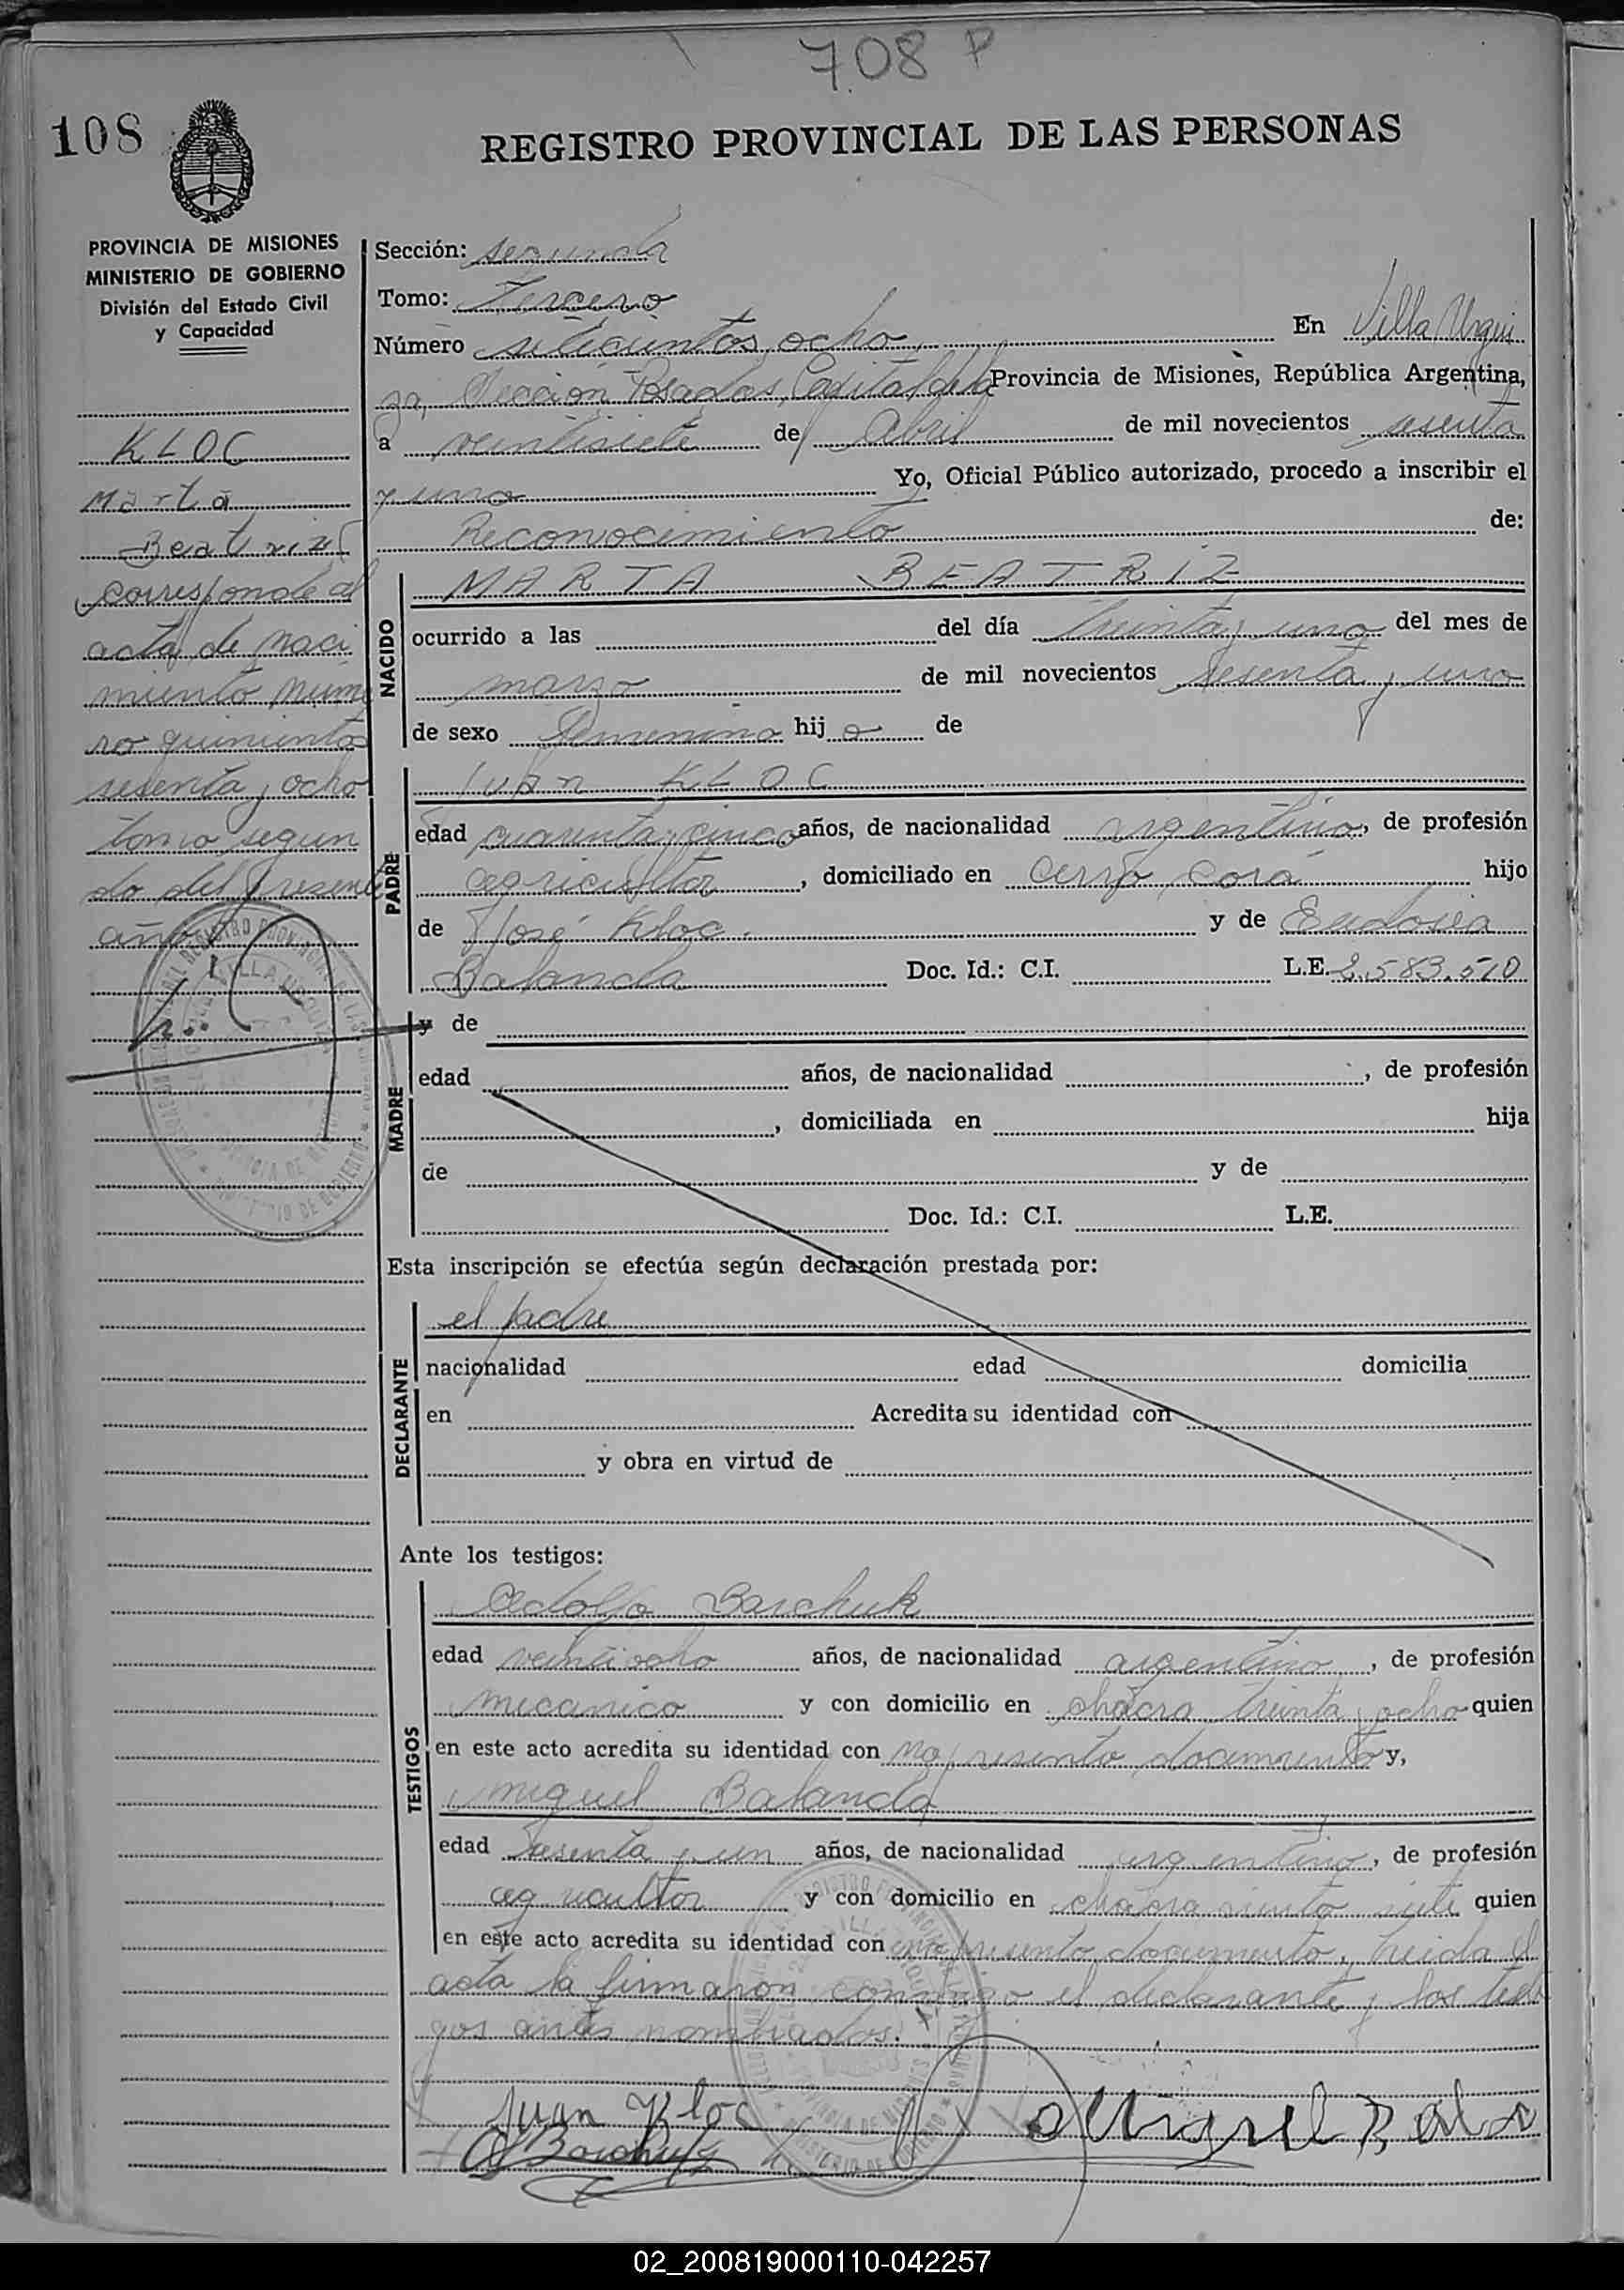 708 P
108
REGISTRO PROVINCIAL DE LAS PERSONAS
PROVINCIA DE MISIONES
MINISTERIO DE GOBIERNO
División del Estado Civil
y Capacidad
KLOC
Marta
Beatriz
corresponde al
acta de naci
miento núme
ro quinientos
sesenta y ocho
tomo segun
do del presente
año
Sección: segunda
Tomo: Tercero
Número setecientos ocho, En Villa Urqui
za, Sección Posadas, Capital de la Provincia de Misiones, República Argentina,
a veintisiete de Abril de mil novecientos sesenta
y uno Yo, Oficial Público autorizado, procedo a inscribir el
Reconocimiento de:
NACIDO
MARTA BEATRIZ
ocurrido a las del día treinta y uno del mes de
marzo de mil novecientos sesenta y uno
de sexo femenino hija de
PADRE
Juan KLOC
edad cuarenta y cinco años, de nacionalidad argentino, de profesión
agricultor, domiciliado en Cerro Corá hijo
de José Kloc y de Eudosia
Balanda Doc. Id.: C.I. L.E. 2.583.510
MADRE
y de
edad años, de nacionalidad , de profesión
, domiciliada en hija
de y de
Doc. Id.: C.I. L.E.
Esta inscripción se efectúa según declaración prestada por:
DECLARANTE
el padre
nacionalidad edad domicilia
en Acredita su identidad con
y obra en virtud de
Ante los testigos:
TESTIGOS
Adolfo Barchuk
edad veintiocho años, de nacionalidad argentino, de profesión
mecanico y con domicilio en chacra treinta y ocho quien
en este acto acredita su identidad con no presento documento y,
Miguel Balanda
edad sesenta y un años, de nacionalidad argentino, de profesión
agricultor y con domicilio en chacra ciento siete quien
en este acto acredita su identidad con no presento documento, leida el
acta la firmaron conmigo el declarante y los testi
gos antes nombrados.
Juan Kloc
Miguel Bala
A Barchuk
02_200819000110-042257